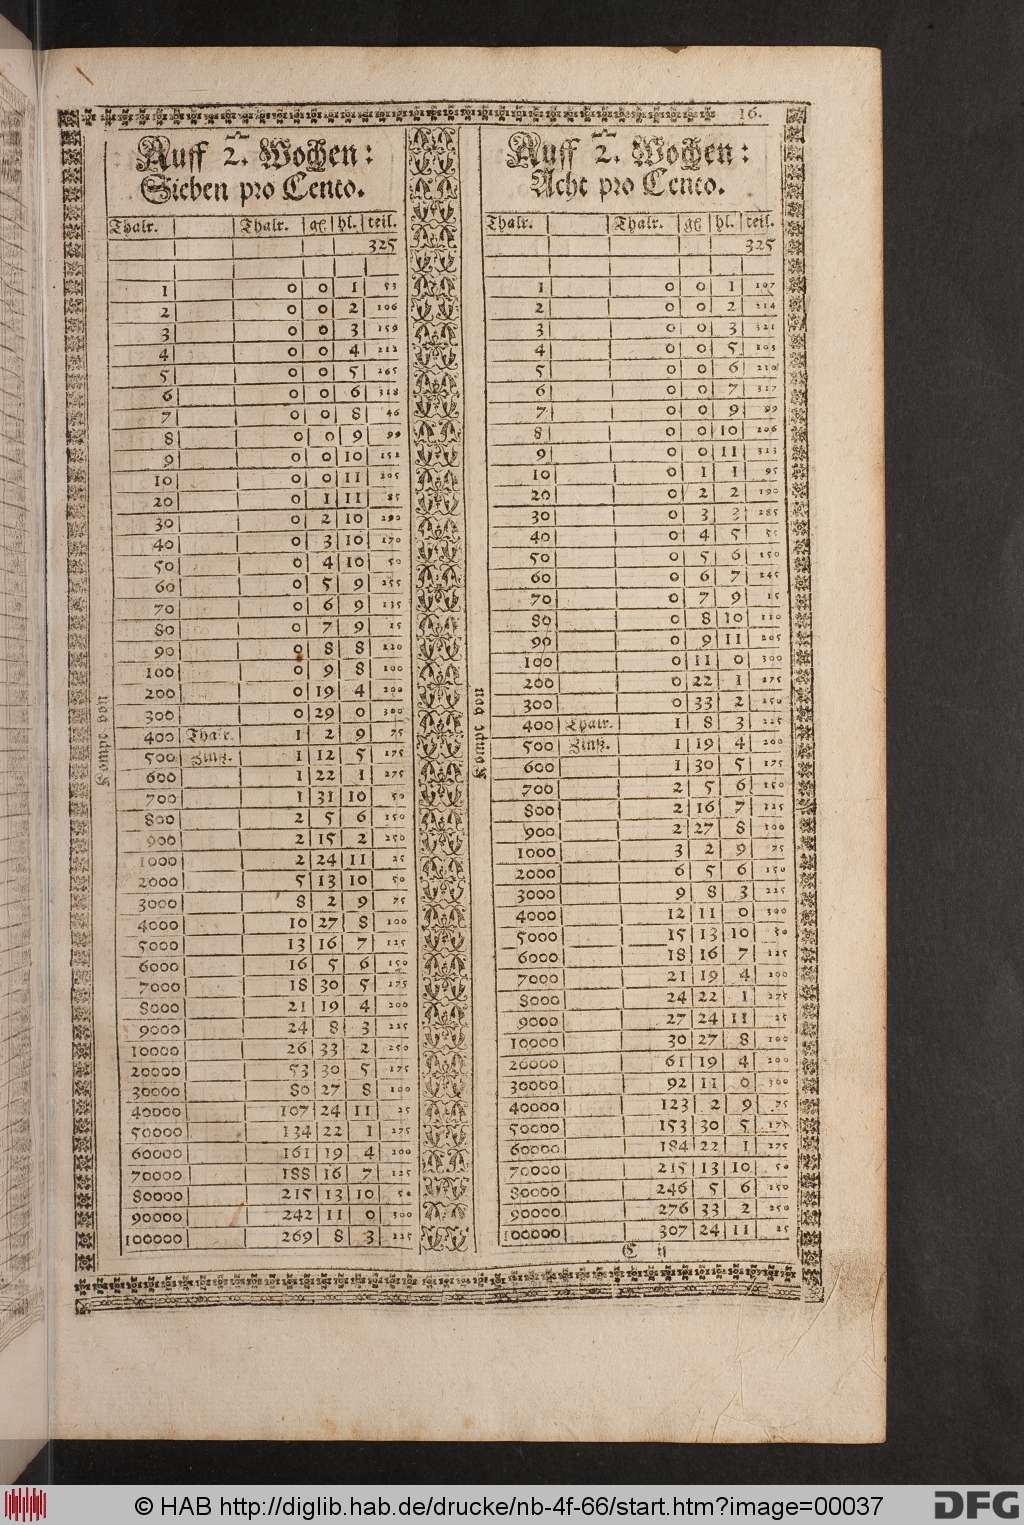 16.
Auff 2. Wochen:
Sieben pro Cento.
Thalr. Thalr. gℓ hl. teil.
325
1 0 0 1 53
2 0 0 2 106
3 0 0 3 159
4 0 0 4 212
5 0 0 5 265
6 0 0 6 318
7 0 0 8 46
8 0 0 9 99
9 0 0 10 152
10 0 0 11 205
20 0 1 11 85
30 0 2 10 290
40 0 3 10 170
50 0 4 10 50
60 0 5 9 255
70 0 6 9 135
80 0 7 9 15
90 0 8 8 220
100 0 9 8 100
200 0 19 4 200
300 0 29 0 300
400 Thalr. 1 2 9 75
500 Zinß. 1 12 5 175
600 1 22 1 275
700 1 31 10 50
800 2 5 6 150
900 2 15 2 250
1000 2 24 11 25
2000 5 13 10 50
3000 8 2 9 75
4000 10 27 8 100
5000 13 16 7 125
6000 16 5 6 150
7000 18 30 5 175
8000 21 19 4 200
9000 24 8 3 225
10000 26 33 2 250
20000 53 30 5 175
30000 80 27 8 100
40000 107 24 11 25
50000 134 22 1 275
60000 161 19 4 200
70000 188 16 7 125
80000 215 13 10 50
90000 242 11 0 300
100000 269 8 3 225
Kompt von
Auff 2. Wochen:
Acht pro Cento.
Thalr. Thalr. gℓ hl. teil.
325
1 0 0 1 107
2 0 0 2 214
3 0 0 3 321
4 0 0 5 103
5 0 0 6 210
6 0 0 7 317
7 0 0 9 99
8 0 0 10 206
9 0 0 11 313
10 0 1 1 95
20 0 2 2 190
30 0 3 3 285
40 0 4 5 55
50 0 5 6 150
60 0 6 7 245
70 0 7 9 15
80 0 8 10 110
90 0 9 11 205
100 0 11 0 300
200 0 22 1 275
300 0 33 2 250
400 Thalr. 1 8 3 225
500 Zinß. 1 19 4 200
600 1 30 5 175
700 2 5 6 150
800 2 16 7 125
900 2 27 8 100
1000 3 2 9 75
2000 6 5 6 150
3000 9 8 3 225
4000 12 11 0 300
5000 15 13 10 50
6000 18 16 7 125
7000 21 19 4 200
8000 24 22 1 275
9000 27 24 11 25
10000 30 27 8 100
20000 61 19 4 200
30000 92 11 0 300
40000 123 2 9 75
50000 153 30 5 175
60000 184 22 1 275
70000 215 13 10 50
80000 246 5 6 150
90000 276 33 2 250
100000 307 24 11 25
Kompt von
C ij
© HAB http://diglib.hab.de/drucke/nb-4f-66/start.htm?image=00037
DFG